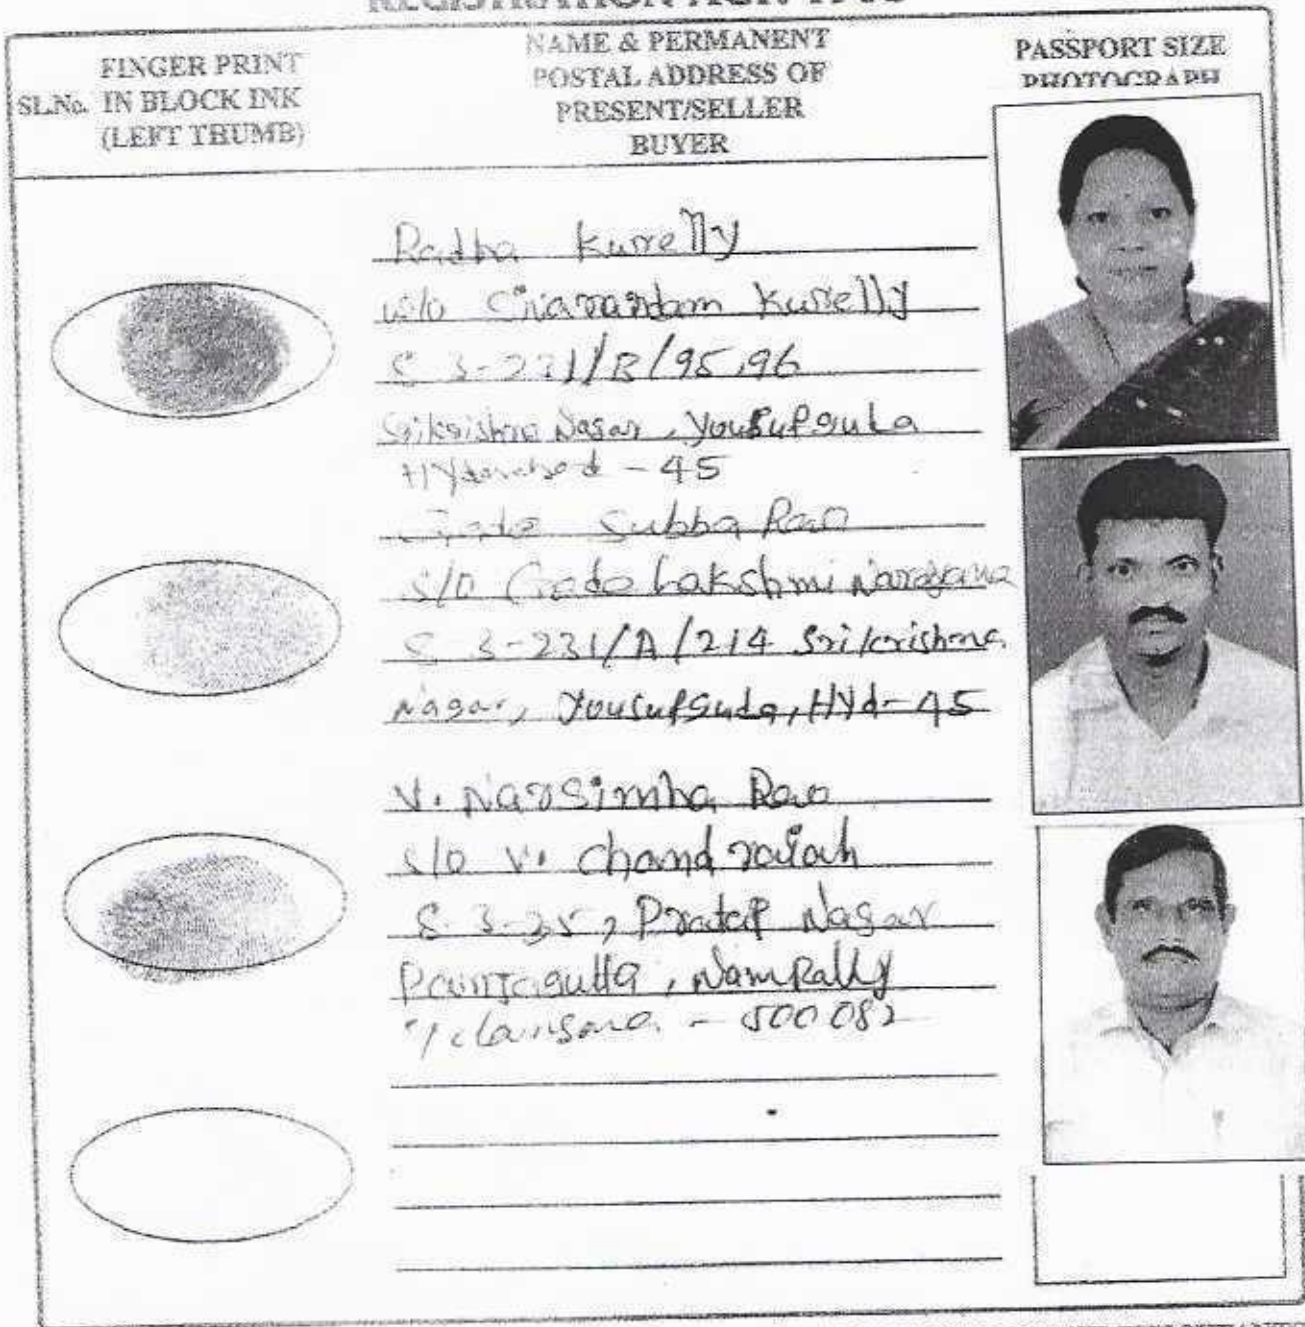 REGISTRATION ACT. 1908
SL.No. FINGER PRINT IN BLOCK INK (LEFT THUMB)
NAME & PERMANENT POSTAL ADDRESS OF PRESENT/SELLER BUYER
PASSPORT SIZE PHOTOGRAPH
Radha Kurelly
w/o Kurelly
3-231/B/95,96
Srikrishna Nagar, Yousufguda
Hyderabad - 45
Gade Subba Rao
s/o Gade Lakshmi Narayana
8 3-231/A/214 Srikrishna
Nagar, Yousufguda, Hyd-45
V. Narsimha Rao
s/o V. Chandraiah
8-3-35, Pratap Nagar
Panjagutta, Nampally
Telangana - 500082